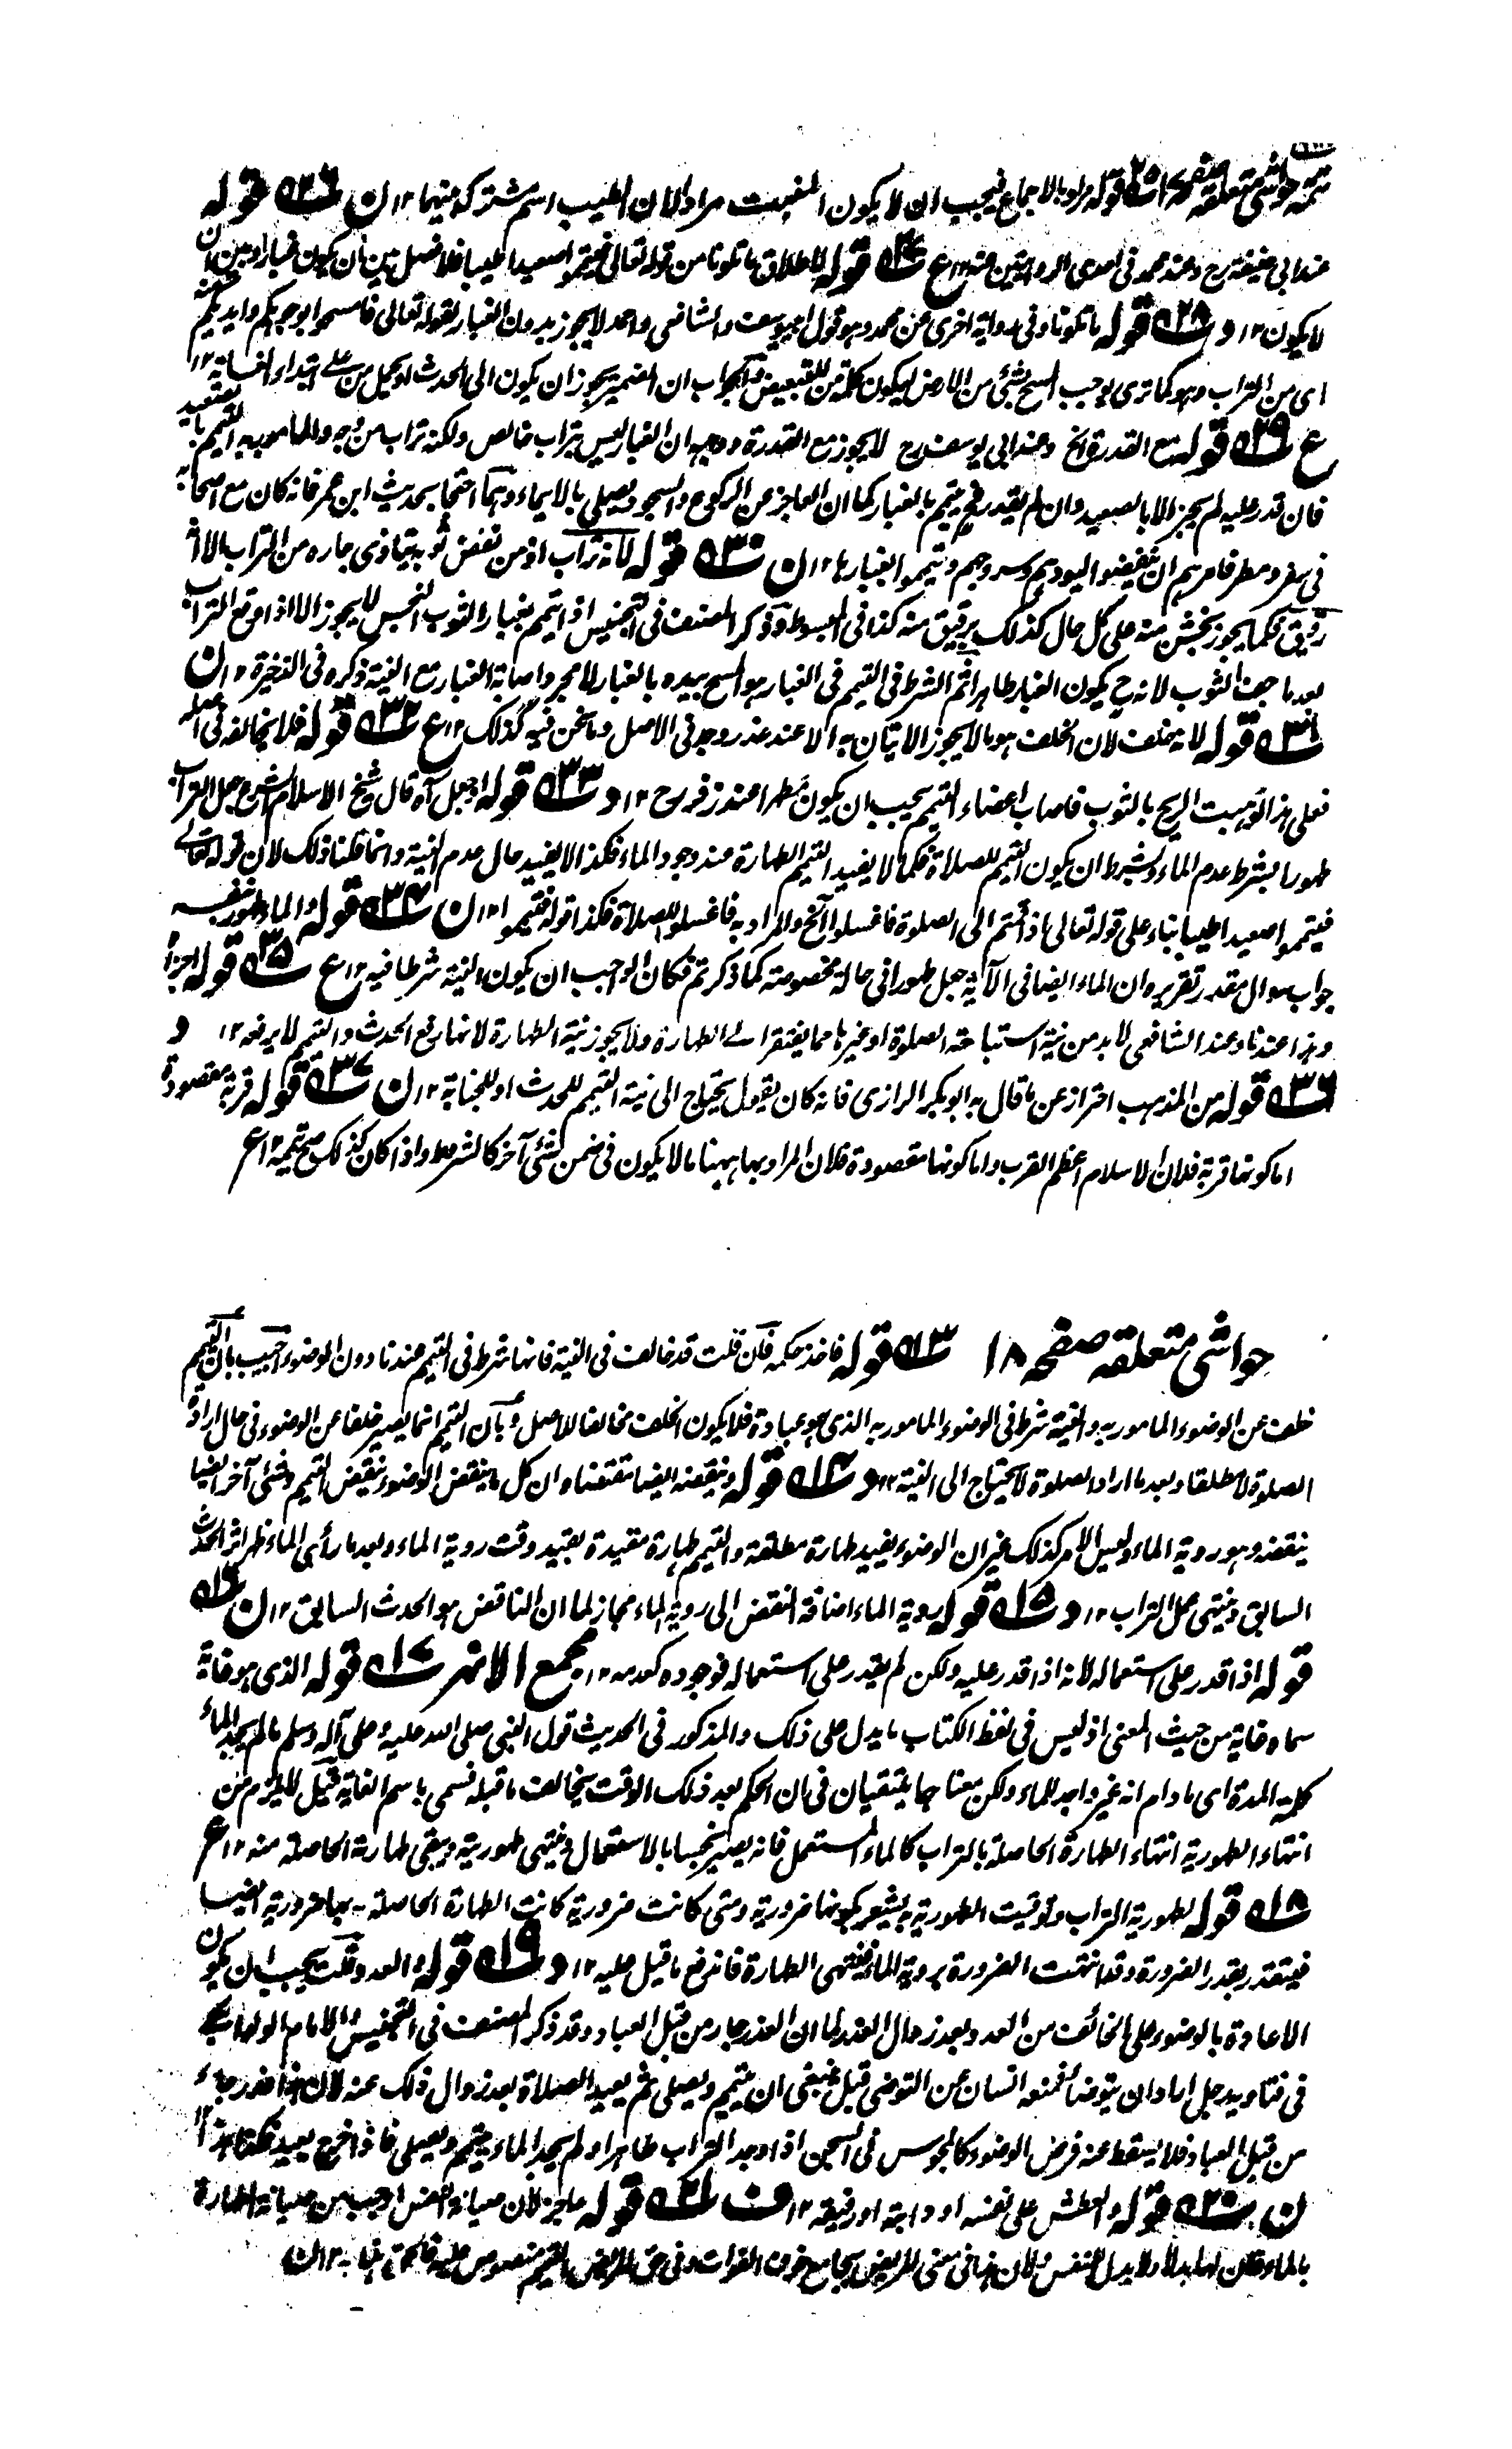 تتمہ حواشی متعلقہ صفحہ ۱۷ ۲۵ قوله مراد بالاجماع فيجب ان لا يكون المنبت مراد الان الطيب اسم مشترك بينهما ۱۲ ن ۲۶ قوله
عند ابى حنيفة رح وعند محمد فى احدى الروايتين عنه ۱۲ ع ۲۷ قوله لاطلاق ما تلونا من قوله تعالى فتيمموا صعيدا طيبا فلا فصل بين ان يكون غبارا وبين ان
لا يكون ۱۲ د ۲۸ قوله ما تلونا وفى رواية اخرى عن محمد وهو قول ابى يوسف والشافعى واحمد لا يجوز بدون الغبار لقوله تعالى فامسحوا بوجوهكم وايديكم منه
اى من التراب وهو كما ترى يوجب المسح بشئ من الارض ليكون كلمة من للتبعيض والجواب ان الضمير يجوز ان يكون الى الحدث او يحمل من على ابتداء الغاية ۱۲
ع ۲۹ قوله مع القدرة الخ وعند ابى يوسف رح لا يجوز مع القدرة ووجهه ان الغبار ليس بتراب خالص ولكنه تراب من وجه والمامور به التيمم بالصعيد
فان قدر عليه لم يجز الا بالصعيد وان لم يقدر فح يتيمم بالغبار كما ان العاجز عن الركوع والسجود يصلى بالايماء وهما احتجا بحديث ابن عمر فانه كان مع اصحابه
فى سفر ومطر فامرهم ان ينفضوا لبودهم وسروجهم ويتيمموا بغبارها ۱۲ ن ۳۰ قوله لانه تراب اذ من نفض ثوبه يتاذى جاره من التراب الا انه
رقيق فكما يجوز بخشن منه على كل حال كذلك برقيق منه كذا فى المبسوط وذكر المصنف فى التجنيس اذا تيمم بغبار الثوب النجس لا يجوز الا اذا وقع التراب
بعد ما جف الثوب لانه ح يكون الغبار طاهرا ثم الشرط فى التيمم فى الغبار هو المسح بيده بالغبار لا مجرد اصابة الغبار مع النية ذكره فى الذخيرة ۱۲ ن
۳۱ قوله لانه خلف لان الخلف هو ما لا يجوز الاتيان به الا عند عذر وجد فى الاصل وما نحن فيه كذلك ۱۲ ع ۳۲ قوله فلا يخالفه فى اصله
فعلى هذا لو هبت الريح بالثوب فاصاب اعضاء التيمم يجب ان يكون مطهرا عند زفر رح ۱۲ د ۳۳ قوله او جعل آه قال شيخ الاسلام الشرع جعل التراب
طهورا بشرط عدم الماء وبشرط ان يكون التيمم للصلاة فكما لا يفيد التيمم الطهارة عند وجود الماء فكذا لا يفيد حال عدم النية وانما قلنا ذلك لان قوله تعالى
فتيمموا صعيدا طيبا بناء على قوله تعالى اذا قمتم الى الصلوة فاغسلوا الخ والمراد به فاغسلوا للصلاة فكذا قوله فتيمموا ۱۲ ن ۳۴ قوله والماء طهور بنفسه
جواب سوال مقدر تقريره ان الماء ايضا فى الآية جعل طهورا فى حالة مخصوصة كما ذكرتم فكان الواجب ان يكون النية شرطا فيه ۱۲ ع ۳۵ قوله اجزأ
وهذا عندنا وعند الشافعى لا بد من نية استباحة الصلوة او غيرها مما يفتقر الى الطهارة ولا يجوز نية الطهارة لانها رفع الحدث والتيمم لا يرفعه ۱۲ د
۳۶ قوله من المذهب احتراز عن ما قال به ابو بكر الرازى فانه كان يقول يحتاج الى نية التيمم للحدث او للجنابة ۱۲ ن ۳۷ قوله قربة مقصودة
اما كونها قربة فلان الاسلام اعظم القرب واما كونها مقصودة فلان المراد بها ههنا ما لا يكون فى ضمن شئ آخر كالشرط واذا كان كذلك صح تيممه ۱۲ ع
حواشی متعلقہ صفحہ ۱۸ ۱۳ قوله فاخذ حكمه فان قلت قد خالف فى النية فانها شرط فى التيمم عندنا دون الوضوء اجيب بان التيمم
خلف عن الوضوء المامور به والنية شرط فى الوضوء المامور به الذى هو عبادة فلا يكون الخلف مخالفا للاصل وبان التيمم انما يصير خلفا عن الوضوء فى حال ارادة
الصلوة لا مطلقا وبعد ما اراد الصلوة لا يحتاج الى النية ۱۲ د ۱۴ قوله وينقضه ايضا مقتضاه ان كل ما ينقض الوضوء ينقض التيمم وشئ آخر ايضا
ينقضه وهو روية الماء وليس الامر كذلك غير ان الوضوء يفيد طهارة مطلقة والتيمم طهارة مقيدة بقيد وقت روية الماء وبعد ما رأى الماء ظهر اثر الحدث
السابق وينتهى عمل التراب ۱۲ د ۱۵ قوله روية الماء اضافة النقض الى روية الماء مجاز لما ان الناقض هو الحدث السابق ۱۲ ن ۱۶
قوله اذا قدر على استعماله لانه اذا قدر عليه ولكن لم يقدر على استعماله فوجوده كعدمه ۱۲ مجمع الانهر ۱۷ قوله الذى هو غاية
سماه غاية من حيث المعنى اذ ليس فى لفظ الكتاب ما يدل على ذلك والمذكور فى الحديث قول النبى صلى الله عليه وعلى آله وسلم ما لم يجد الماء
كلمة المدة اى ما دام انه غير واجد للماء ولكن معناهما يلتقيان فى ان الحكم بعد ذلك الوقت يخالف ما قبله فسمى باسم الغاية فقيل لا يلزم من
انتهاء الطهورية انتهاء الطهارة الحاصلة بالتراب كالماء المستعمل فانه يصير نجسا بالاستعمال وينتهى طهوريته ويبقى طهارته الحاصلة منه ۱۲ ع
۱۸ قوله لطهورية التراب وتوقيت الطهورية به يشعر بكونها ضرورية ومتى كانت ضرورية كانت الطهارة الحاصلة بها ضرورية ايضا
فيتقدر بقدر الضرورة وقد انتهت الضرورة بروية الماء فينتهى الطهارة فاندفع ما قيل عليه ۱۲ د ۱۹ قوله والعدو قلت يجب ان يكون
الاعادة بالوضوء على الخائف من العدو بعد زوال العذر لما ان العذر جاء من قبل العباد وقد ذكر المصنف فى التجنيس والامام الولوالجى
فى فتاويه رجل اراد ان يتوضأ فمنعه انسان عن التوضى قيل ينبغى ان يتيمم ويصلى ثم يعيد الصلاة بعد زوال ذلك عنه لان هذا عذر جاء
من قبل العباد فلا يسقط عنه فرض الوضوء كالمحبوس فى السجن اذا وجد التراب طاهرا ولم يجد الماء يتيمم ويصلى فاذا خرج يعيد فكذا هذا
ن ۲۰ قوله والعطش على نفسه او دابته او رفيقه ۱۲ ف ۲۱ قوله عاجز لان صيانة النفس اوجب من صيانة الطهارة
بالماء فان لها بدلا ولا بدل للنفس ولان هذا فى معنى المريض بجامع خوف الفوات وفى حق المريض التيمم منصوص عليه فالحق هذا به ۱۲ ن